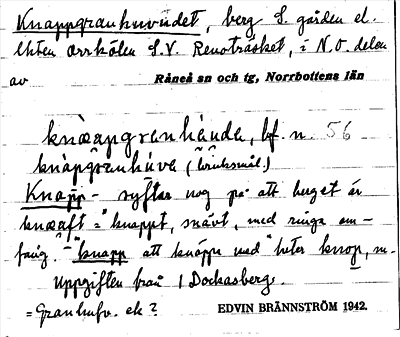 Knappgranhuvudet, berg S. gården el.
Ühten Orrkölen S.V. Renoträsket, i N.O. delen
av Råneå sn och tg, Norrbottens län
knäapgranhåude, bf. n. 56
knàpgranhúve (bruksmål)
Knapp- syftar nog på att berget är
knäaft = "knappt, snävt, med ringa om-
fång". - "knapp att knäppa med" heter knop, m.
Uppgiften från 1 Dockasberg.
= Granhufv. ek?
EDVIN BRÄNNSTRÖM 1942.